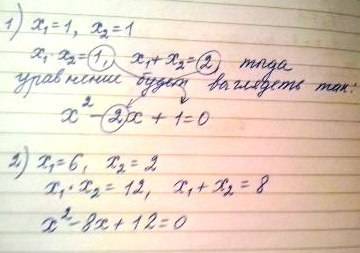 1) x₁=1, x₂=1
x₁·x₂=1, x₁+x₂=2, тогда
уравнение будет выглядеть так:
x²-2x+1=0
2) x₁=6, x₂=2
x₁·x₂=12, x₁+x₂=8
x²-8x+12=0